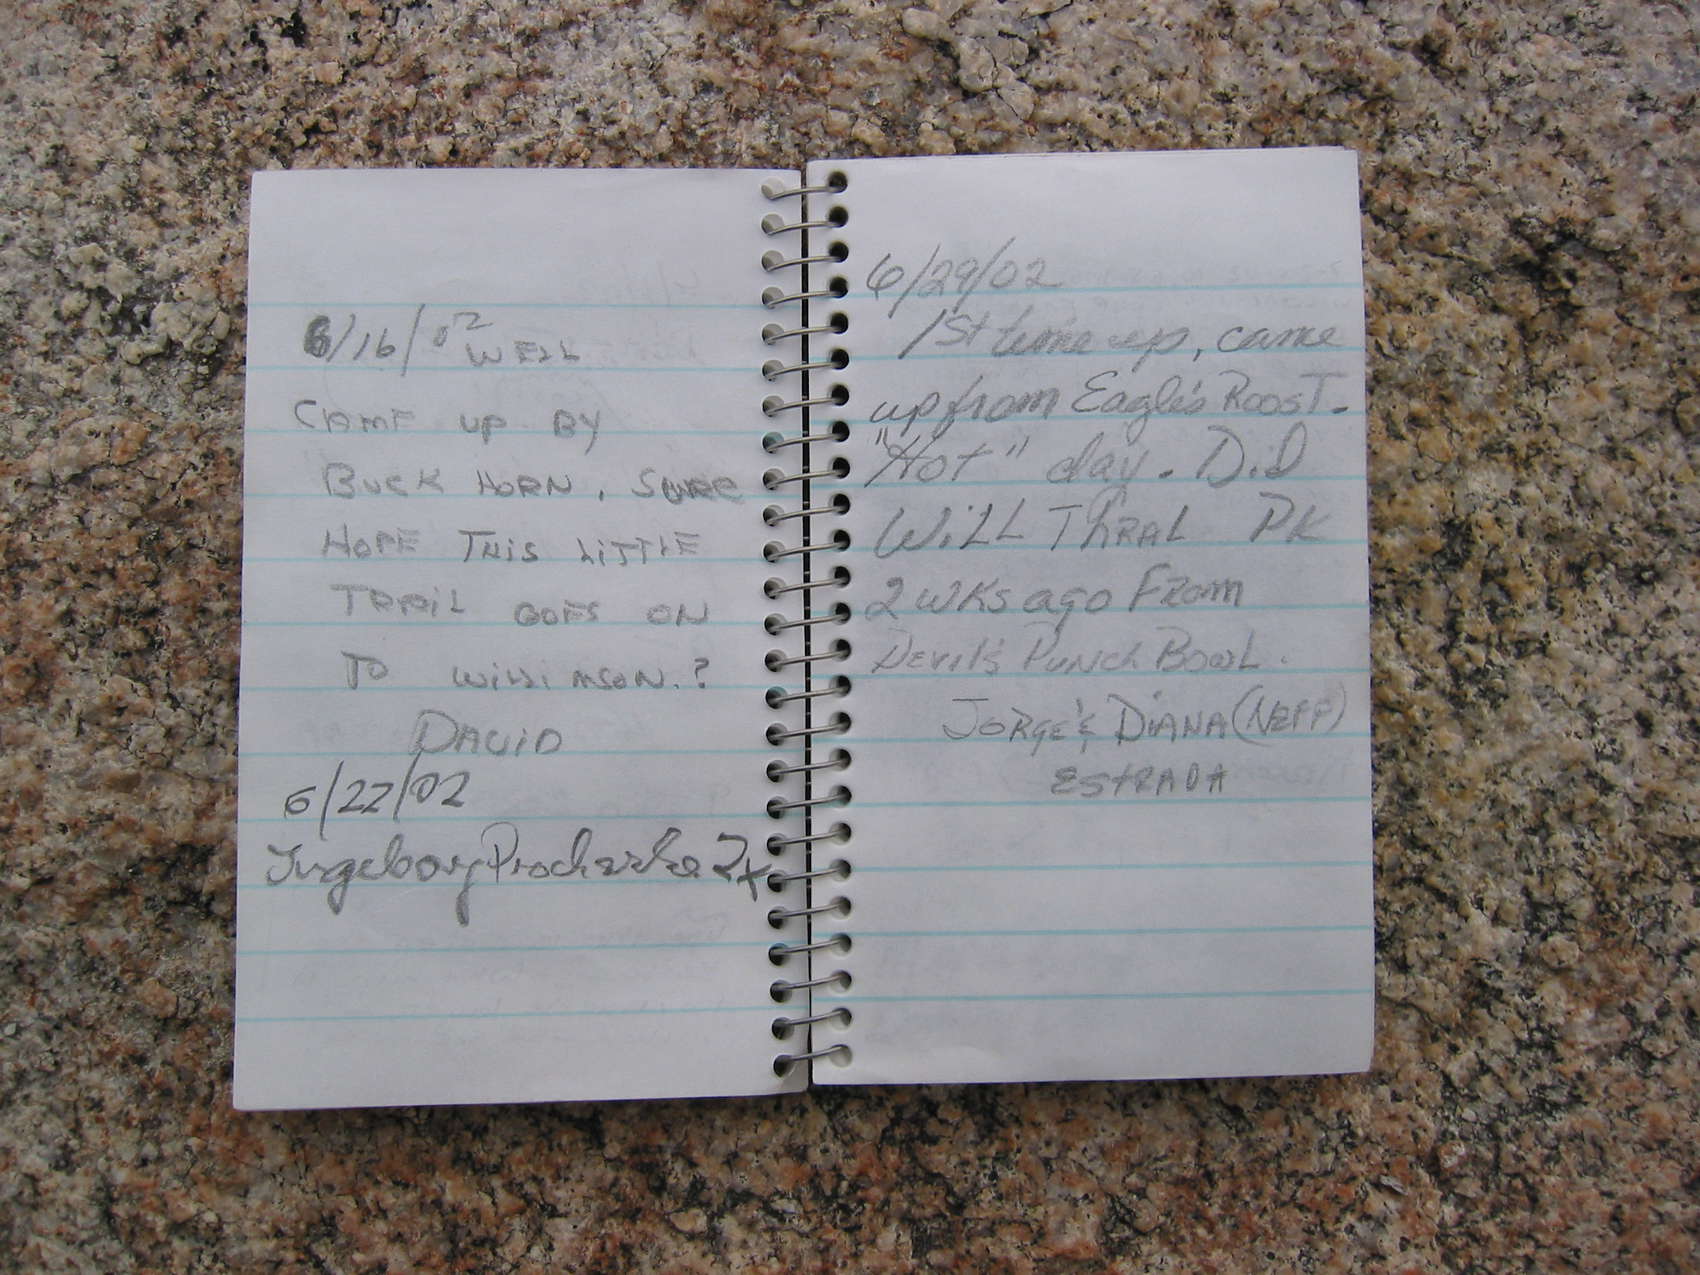 6/16/02 WELL
CAME UP BY
BUCK HORN, SURE
HOPE THIS LITTLE
TRAIL GOES ON
TO WILLIMSON.?
DAVID
6/22/02
Ingeborg Prochazka 2x
6/29/02
1st time up, came
up from Eagle's Roost.
"Hot" day. Did
Will Thral PK
2 wks ago From
Devil's Punch Bowl.
Jorge & Diana (Neff)
Estrada